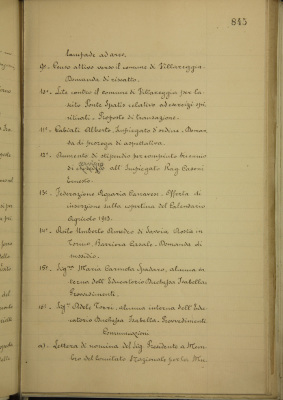 845
lampade ad arco.
9º- Censo attivo verso il comune di Villareggia.
Domanda di riscatto.
10º- Lite contro il comune di Villareggia per la
lite relativo ad esercizi spi
rituali. - Proposta di transazione.
11º- Alberto Impiegato d'ordine. Doman
da di proroga di aspettativa.
12º- Aumento di stipendio per compiuto
di all' Impiegato Rag.
Ernesto.
13º- Federazione Agraria Canavese. Offerta di
inserzione sulla copertina del Calendario
Agricolo 1913.
14º- Asilo Umberto Amedeo di Savoia Aosta in
Torino Barriera Casale. Domanda di
sussidio.
15º- Sig.na Maria Carmela Spadaro, alunna es
terna dell' Educatorio Duchessa Isabella
Provvedimenti.
16º- Sig.na Adele alunna interna dell' Edu-
catorio Duchessa Isabella. Provvedimenti
Comunicazioni
a). Lettera di nomina del Sig. Presidente a Mem-
bro del Comitato Nazionale per la